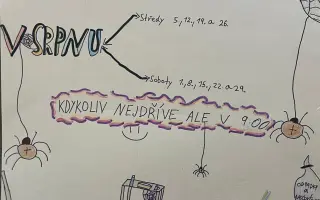 Středy 5., 12., 19. a 26.
V SRPNU
Soboty 1., 8., 15., 22. a 29.
KDYKOLIV NEJDŘÍVE ALE V 9:00